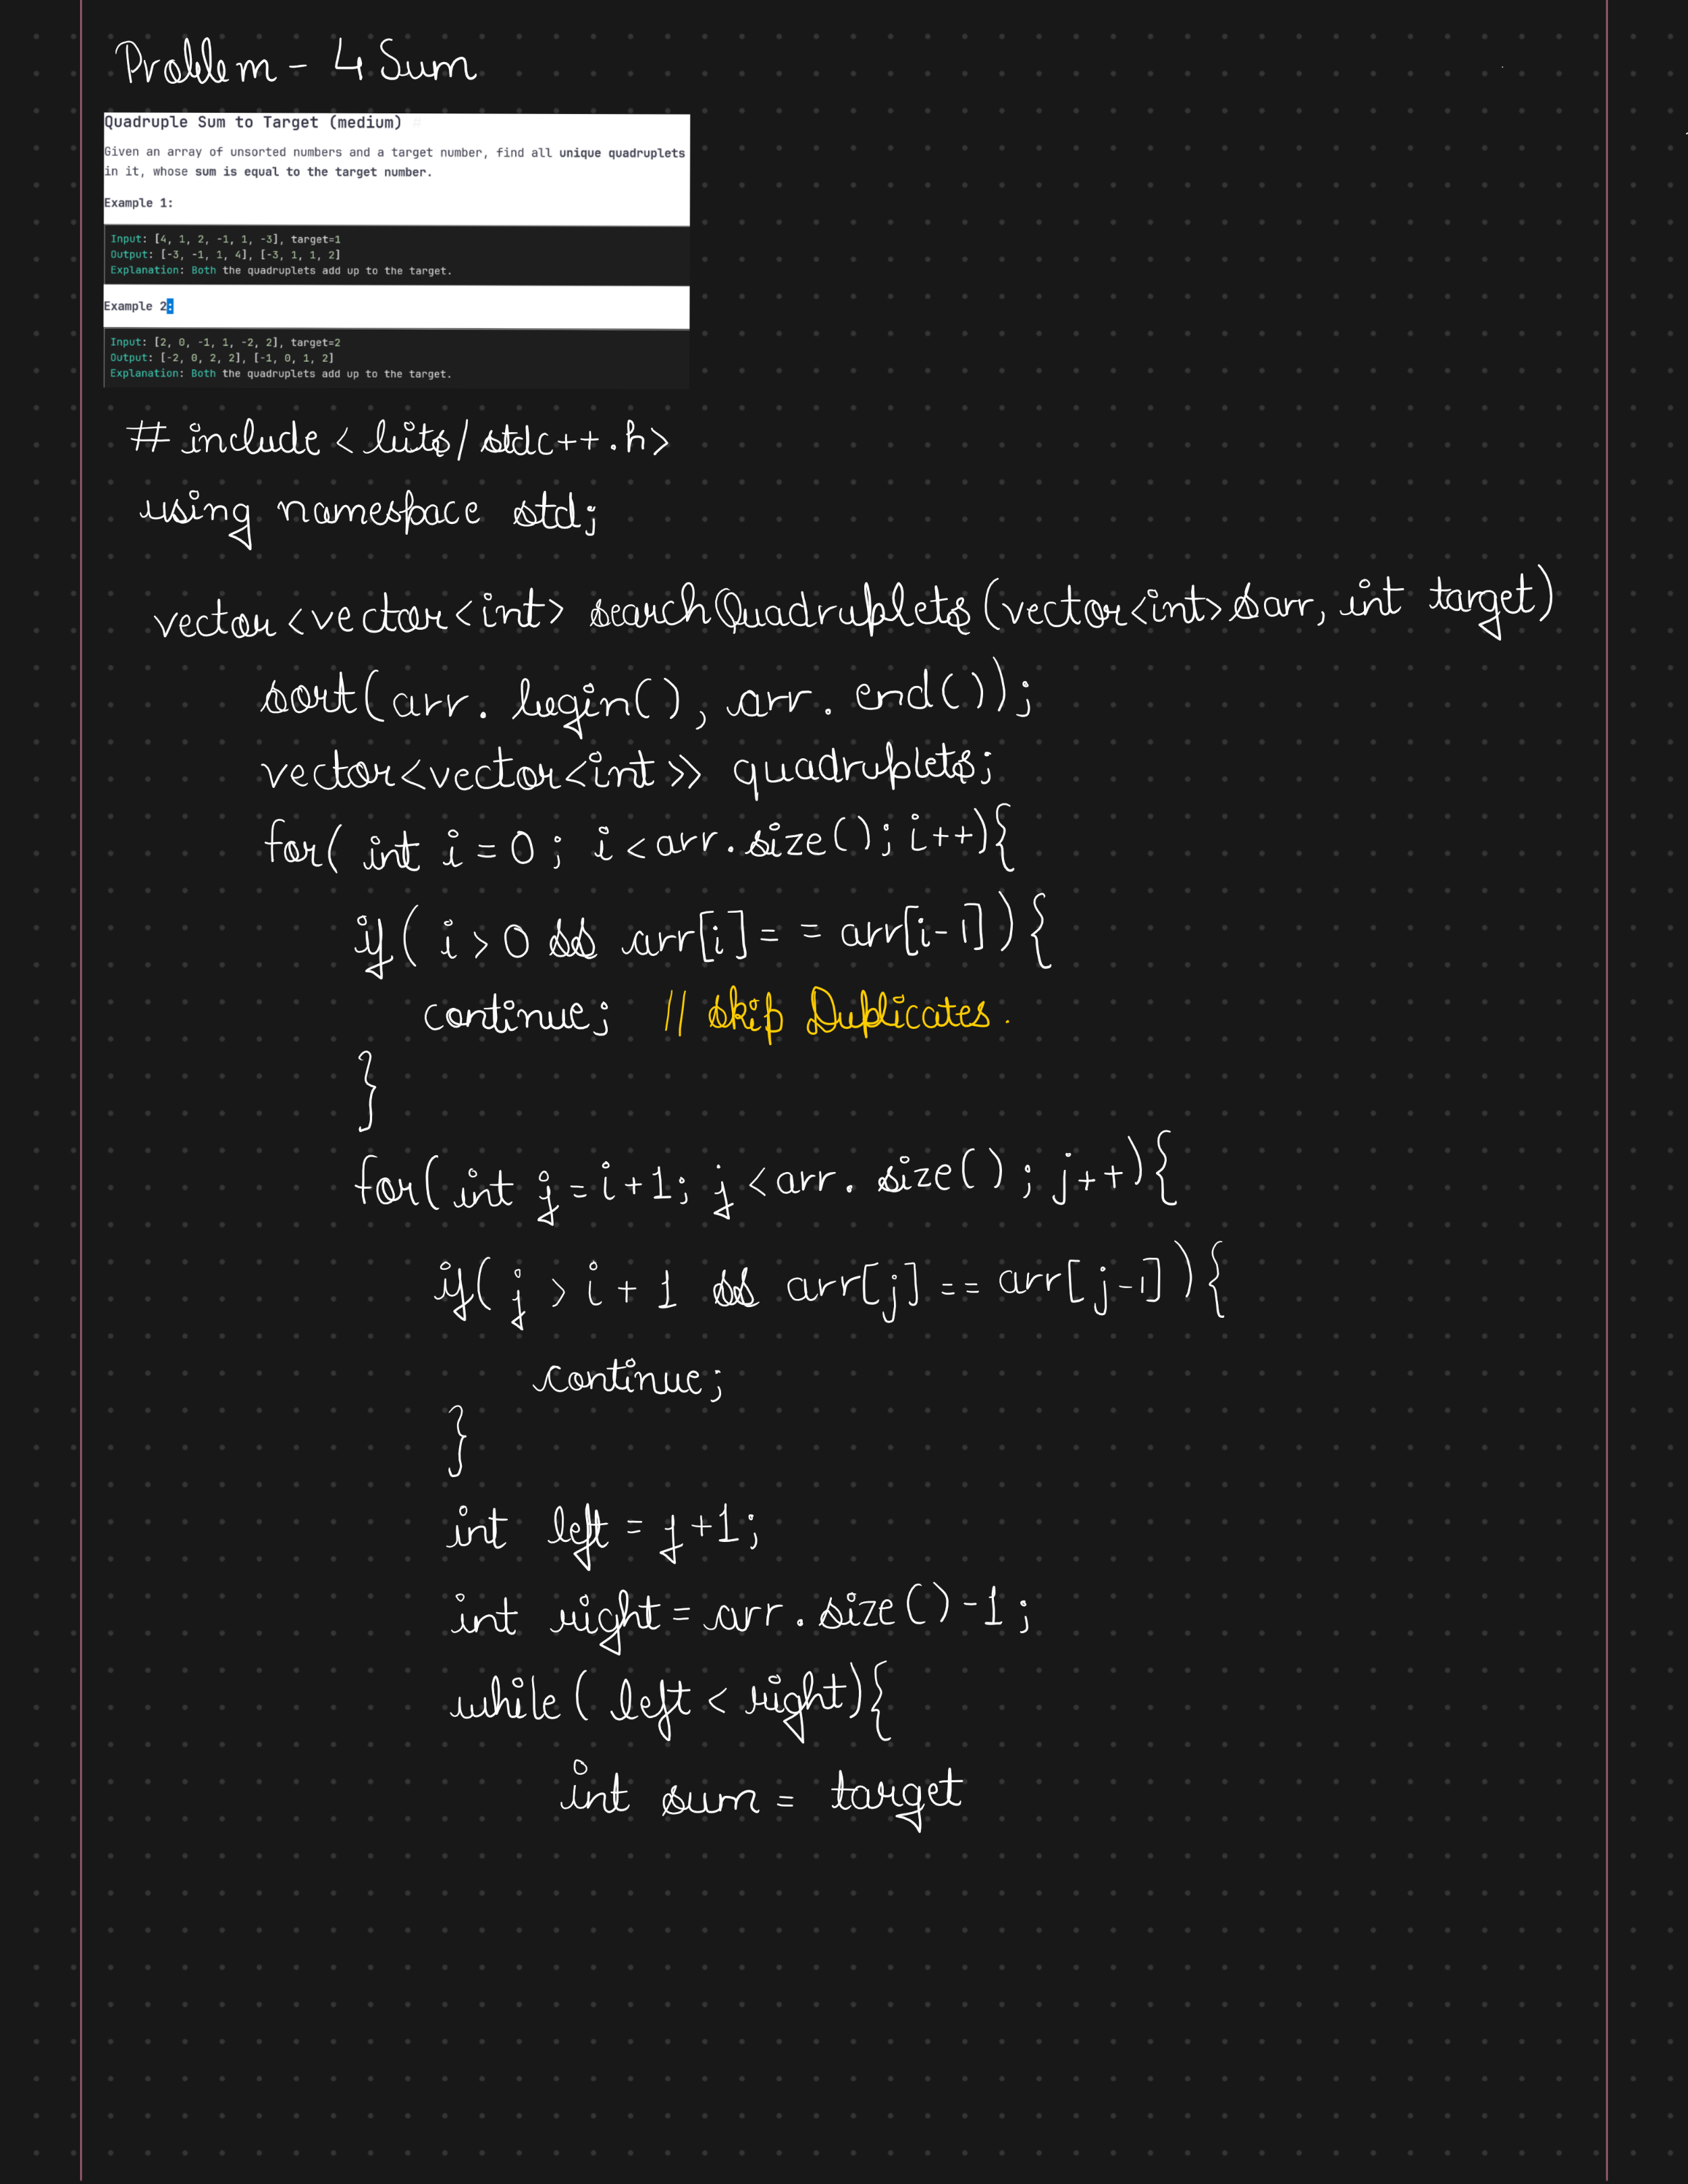 Problem - 4 Sum
Quadruple Sum to Target (medium)
Given an array of unsorted numbers and a target number, find all unique quadruplets
in it, whose sum is equal to the target number.
Example 1:
Input: [4, 1, 2, -1, 1, -3], target=1
Output: [-3, -1, 1, 4], [-3, 1, 1, 2]
Explanation: Both the quadruplets add up to the target.
Example 2:
Input: [2, 0, -1, 1, -2, 2], target=2
Output: [-2, 0, 2, 2], [-1, 0, 1, 2]
Explanation: Both the quadruplets add up to the target.
# include < bits/ stdc++.h>
using namespace std;
vector <vector <int> searchQuadruplets (vector<int> &arr, int target)
sort(arr. begin(), arr. end());
vector<vector<int>> quadruplets;
for( int i = 0 ; i < arr. size(); i++){
if( i > 0 && arr[i] = = arr[i-1]){
continue; // skip Duplicates.
}
for( int j = i+1; j < arr. size(); j++){
if( j > i + 1 && arr[j] == arr[j-1]){
continue;
}
int left = j +1;
int right = arr. size() -1;
while( left < right){
int sum = target